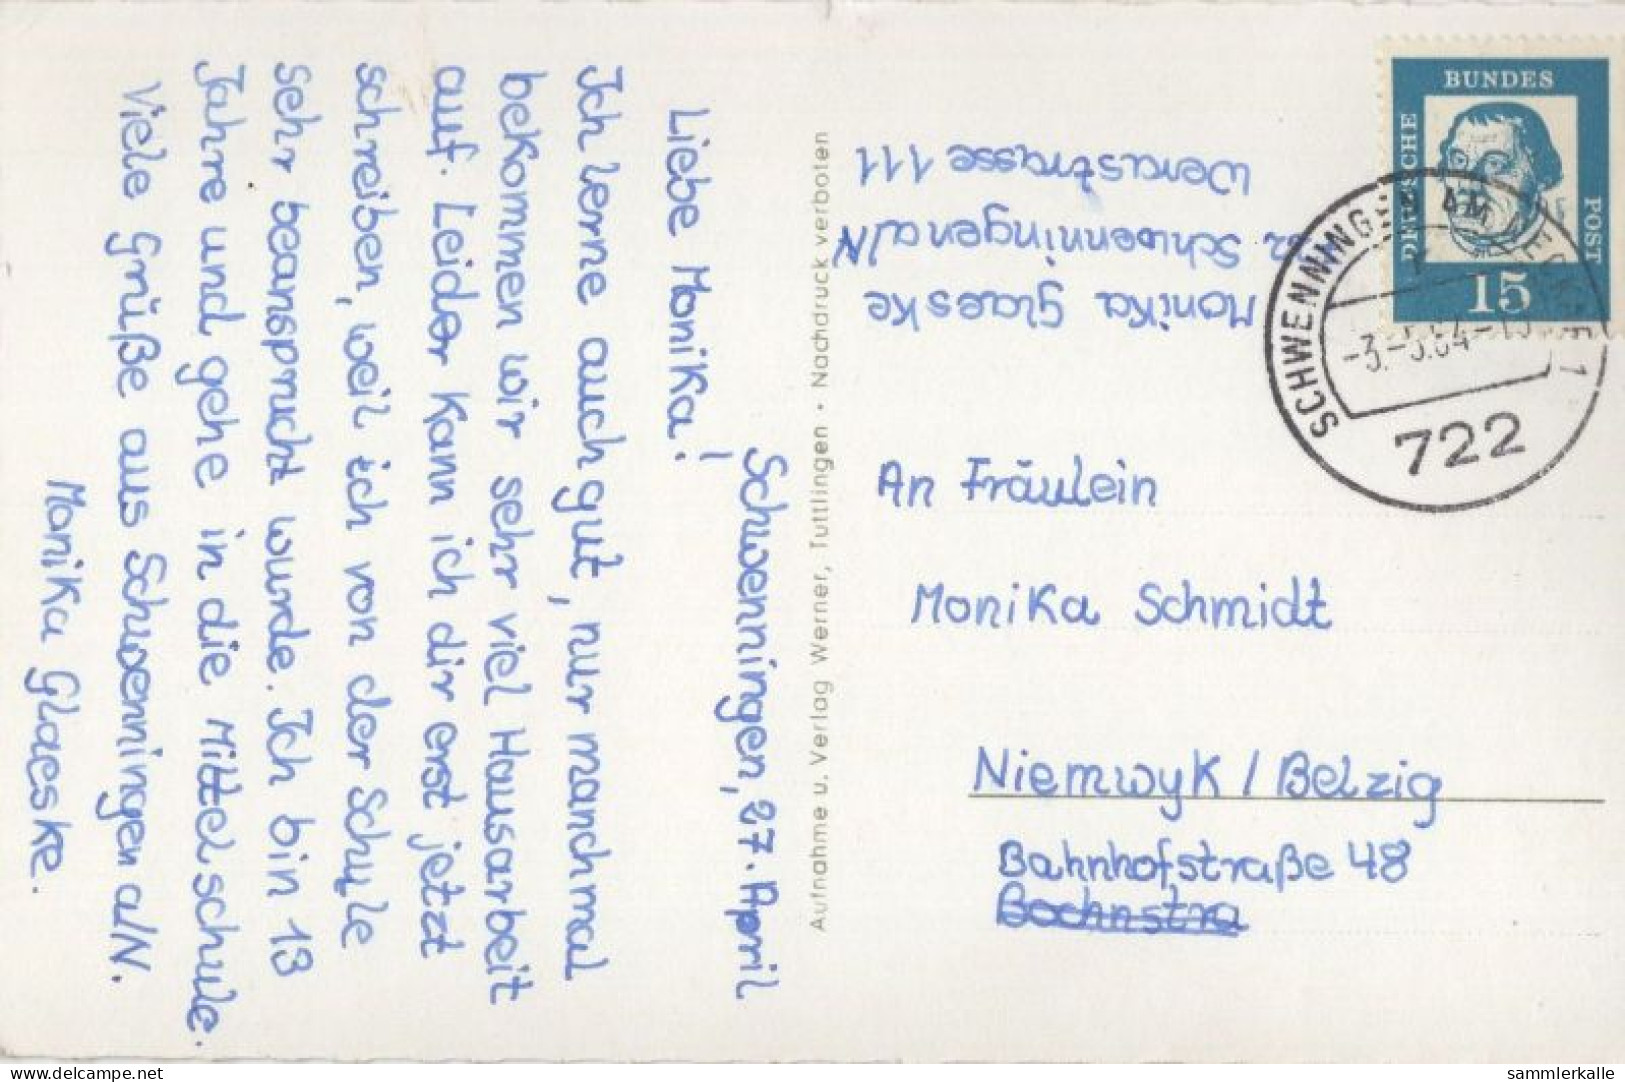 Schwenningen, 27. April
Liebe Monika!
Ich lerne auch gut, nur manchmal
bekommen wir sehr viel Hausarbeit
auf. Leider kann ich dir erst jetzt
schreiben, weil ich von der Schule
sehr beansprucht wurde. Ich bin 13
Jahre und gehe in die Mittelschule.
Viele Grüße aus Schwenningen a/N.
Monika Glaeske.
Aufnahme u. Verlag Werner, Tuttlingen · Nachdruck verboten
Monika Glaeske
Schwenningen a/N
Werastrasse 111
DEUTSCHE
BUNDES
POST
15
SCHWENNINGEN AM NECKAR 1
722
An Fräulein
Monika Schmidt
Niemwyk / Belzig
Bahnhofstraße 48
Bochnstra
delcampe.net
sammlerkalle